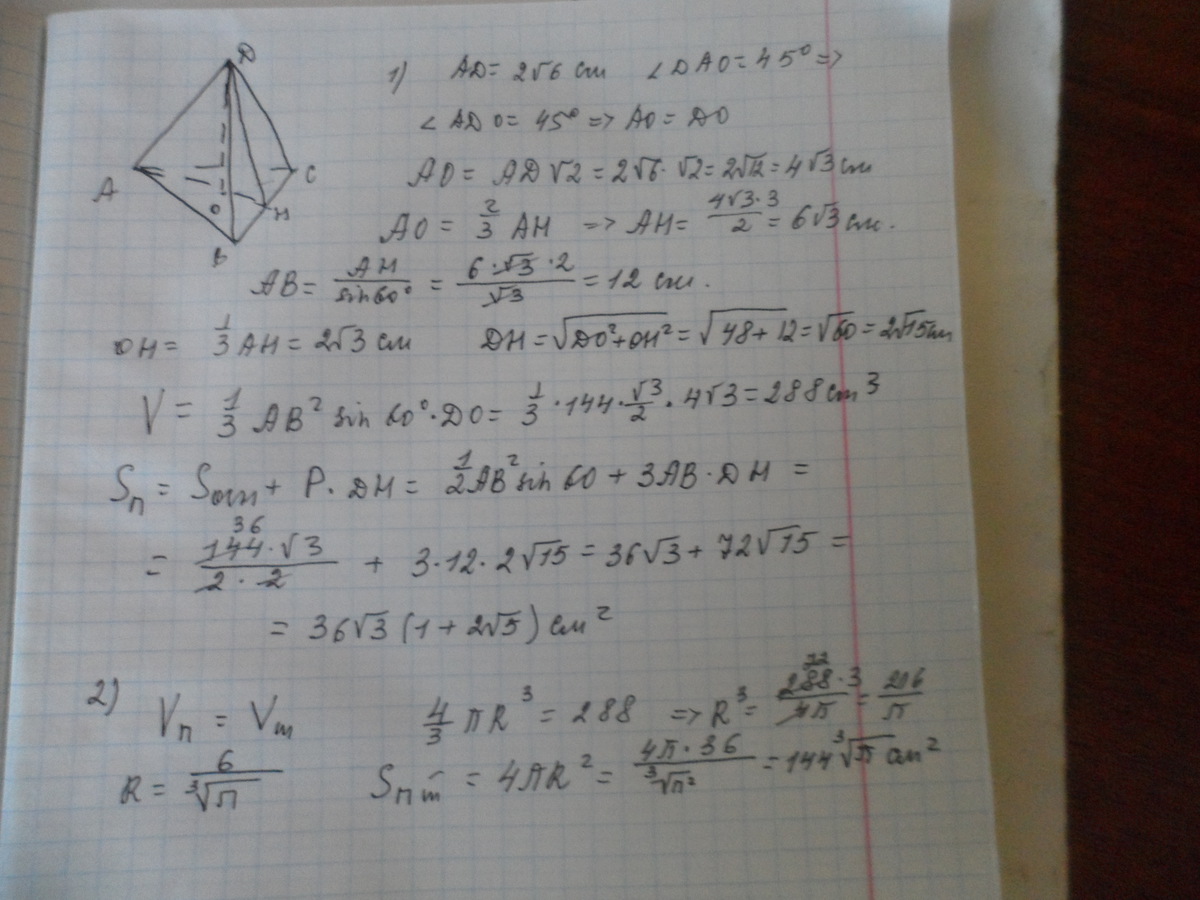 D
A
C
O
H
B
1) AD = 2√6 см ∠DAO = 45° =>
∠ADO = 45° => AO = DO
AO = AD√2 = 2√6·√2 = 2√12 = 4√3 см
AO = 2/3 AH => AH = 4√3·3/2 = 6√3 см.
AB = AH/sin60° = 6·√3·2/√3 = 12 см.
OH = 1/3 AH = 2√3 см DH = √(DO²+OH²) = √(48+12) = √60 = 2√15 см
V = 1/3 AB² sin 60°·DO = 1/3·144·√3/2·4√3 = 288 см³
Sп = Sосн + P·DH = 1/2 AB² sin 60 + 3AB·DH =
= 144·√3/(2·2) 36 + 3·12·2√15 = 36√3 + 72√15 =
= 36√3 (1 + 2√5) см²
2) Vп = Vш 4/3 πR³ = 288 => R³ = 288·3/4π 72 = 216/π
R = 6/∛π Sп ш = 4πR² = 4π·36/∛π² = 144∛π см²